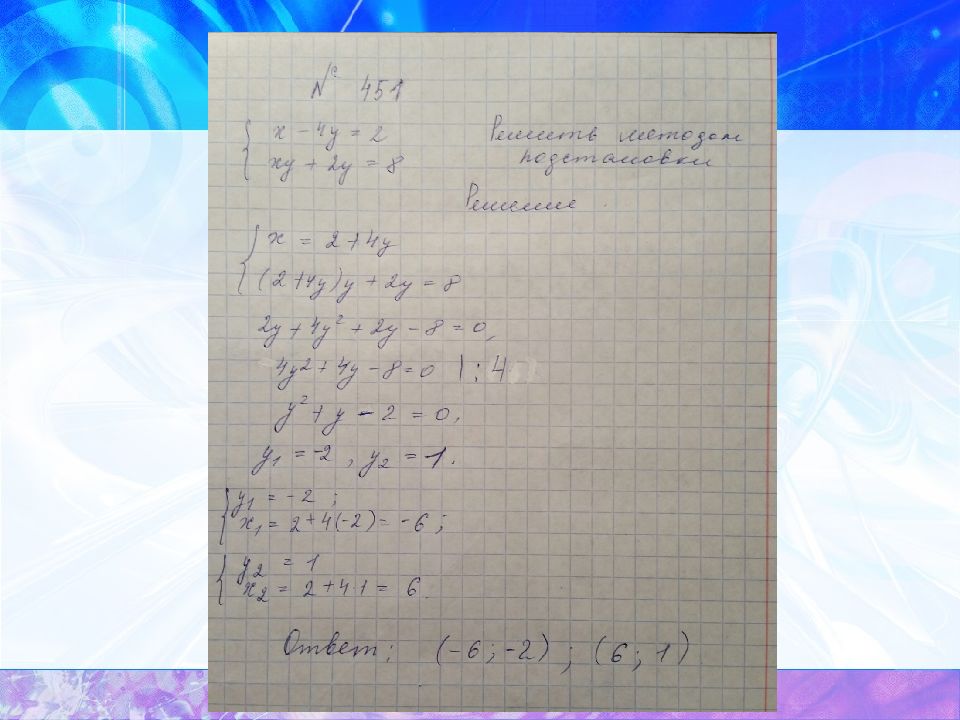 № 451
{ x - 4y = 2
xy + 2y = 8
Решить методом
подстановки
Решение.
{ x = 2 + 4y
(2+4y)y + 2y = 8
2y + 4y² + 2y - 8 = 0,
4y² + 4y - 8 = 0 | : 4
y² + y - 2 = 0,
y₁ = -2, y₂ = 1.
{ y₁ = -2 ;
x₁ = 2 + 4(-2) = -6 ;
{ y₂ = 1
x₂ = 2 + 4·1 = 6.
Ответ: (-6 ; -2) ; (6 ; 1)